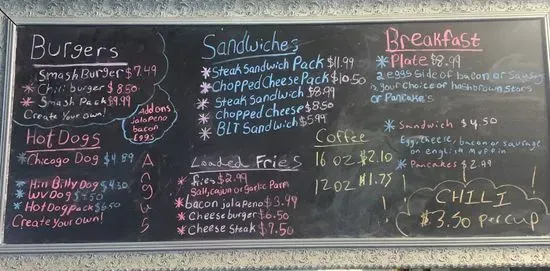 Burgers
Smash Burger $7.49
* Chili burger $8.50
* Smash Pack $9.99
Create your own!
Add ons
jalapeno
bacon
Eggs
Hot Dogs
* Chicago Dog $4.89
* Hill Billy Dog $4.50
* WV Dog $3.50
* Hot Dog pack $6.50
Create your own!
Sandwiches
* Steak Sandwich Pack $11.99
* Chopped Cheese Pack $10.50
* Steak Sandwich $8.99
* Chopped Cheese $8.50
* BLT Sandwich $5.99
Loaded Fries
* fries $2.99
Salt, cajun or Garlic Parm
* bacon jalapeno $3.99
* Cheeseburger $6.50
* Cheese Steak $7.50
Coffee
16 oz $2.10
12 oz $1.75
Breakfast
* Plate $8.99
2 eggs side of bacon or Sausag
is your choice of hashbrown stars
or Pancakes
* Sandwich $4.50
Egg, cheese, bacon or sausage
on english muffin
* Pancakes $2.99
CHILI
$3.50 per cup